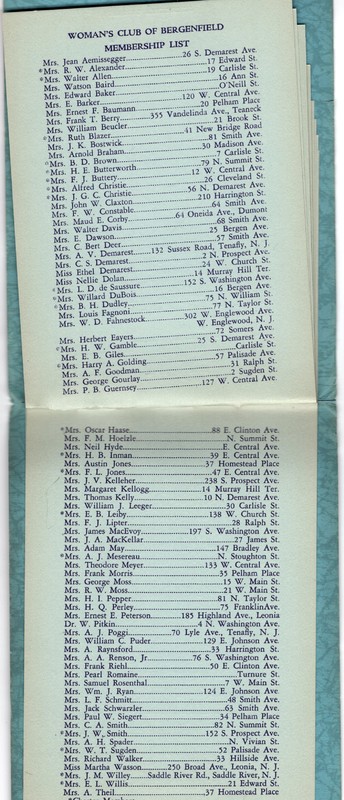 WOMAN'S CLUB OF BERGENFIELD
MEMBERSHIP LIST
Mrs. Jean Aemissegger 26 S. Demarest Ave.
*Mrs. R. W. Alexander 17 Edward St.
*Mrs. Walter Allen 19 Carlisle St.
Mrs. Watson Baird 16 Ann St.
Mrs. Edward Baker O'Neill St.
Mrs. E. Barker 120 W. Central Ave.
Mrs. Ernest F. Baumann 20 Pelham Place
Mrs. Frank T. Berry 355 Vandelinda Ave., Teaneck
Mrs. William Beucler 21 Brook St.
*Mrs. Ruth Blazer 41 New Bridge Road
Mrs. J. K. Bostwick 81 Smith Ave.
Mrs. Arnold Braham 30 Madison Ave.
*Mrs. B. D. Brown 7 Carlisle St.
*Mrs. H. E. Butterworth 79 N. Summit St.
*Mrs. F. J. Buttery 12 W. Central Ave.
*Mrs. Alfred Christie 26 Cleveland St.
*Mrs. J. G. C. Christie 56 N. Demarest Ave.
Mrs. John W. Claxton 210 Harrington St.
Mrs. F. W. Constable 64 Smith Ave.
Mrs. Maud E. Corby 64 Oneida Ave., Dumont
Mrs. Walter Davis 68 Smith Ave.
Mrs. E. Dawson 25 Bergen Ave.
Mrs. C. Bert Deer 57 Smith Ave.
Mrs. A. V. Demarest 132 Sussex Road, Tenafly, N. J.
Mrs. C. S. Demarest 2 N. Prospect Ave.
Miss Ethel Demarest 24 W. Church St.
Miss Nellie Dolan 14 Murray Hill Ter.
*Mrs. L. D. de Saussure 152 S. Washington Ave.
*Mrs. Willard DuBois 16 Bergen Ave.
*Mrs. B. H. Dudley 75 N. William St.
Mrs. Louis Fagnoni 77 N. Taylor St.
Mrs. W. D. Fahnestock 302 W. Englewood Ave.
W. Englewood, N. J.
Mrs. Herbert Eayers 72 Somers Ave.
*Mrs. H. W. Gamble 25 S. Demarest Ave.
Mrs. E. B. Giles Carlisle St.
*Mrs. Harry A. Golding 57 Palisade Ave.
Mrs. A. F. Goodman 31 Ralph St.
Mrs. George Gourlay 2 Sugden St.
Mrs. P. B. Guernsey 127 W. Central Ave.
*Mrs. Oscar Haase 88 E. Clinton Ave.
Mrs. F. M. Hoelzle N. Summit St.
Mrs. Neil Hyde E. Central Ave.
*Mrs. H. B. Inman 39 E. Central Ave.
Mrs. Austin Jones 37 Homestead Place
*Mrs. F. L. Jones 47 E. Central Ave.
Mrs. J. V. Kelleher 238 S. Prospect Ave.
Mrs. Margaret Kellogg 14 Murray Hill Ter.
Mrs. Thomas Kelly 10 N. Demarest Ave.
Mrs. William J. Leeger 30 Carlisle St.
*Mrs. E. B. Leiby 138 W. Church St.
Mrs. F. J. Lipter 28 Ralph St.
Mrs. James MacEvoy 197 S. Washington Ave.
Mrs. J. A. MacKellar 27 James St.
Mrs. Adam May 147 Bradley Ave.
*Mrs. A. J. Mesereau N. Stoughton St.
Mrs. Theodore Meyer 133 W. Central Ave.
Mrs. Frank Morris 35 Pelham Place
Mrs. George Moss 15 W. Main St.
Mrs. R. W. Moss 21 W. Main St.
Mrs. H. I. Pepper 81 N. Taylor St.
Mrs. H. Q. Perley 75 FranklinAve.
Mrs. Ernest E. Peterson 185 Highland Ave., Leonia
Dr. W. Pitkin 4 N. Washington Ave.
*Mrs. A. J. Poggi 70 Lyle Ave., Tenafly, N. J.
Mrs. William C. Puder 129 E. Johnson Ave.
Mrs. A. Raynsford 33 Harrington St.
Mrs. A. A. Renson, Jr 76 S. Washington Ave.
Mrs. Frank Riehl 50 E. Clinton Ave.
Mrs. Pearl Romaine Turnure St.
Mrs. Samuel Rosenthal 7 W. Main St.
Mrs. Wm. J. Ryan 124 E. Johnson Ave.
Mrs. L. F. Schmitt 48 Smith Ave.
Mrs. Jack Schwarzler 63 Smith Ave.
Mrs. Paul W. Siegert 34 Pelham Place
Mrs. C. A. Smith 82 N. Summit St.
*Mrs. J. W. Smith 152 S. Prospect Ave.
Mrs. A. H. Spader N. Vivian St.
*Mrs. W. T. Sugden 52 Palisade Ave.
Mrs. Richard Walker 33 Hillside Ave.
Miss Martha Wasson 250 Broad Ave., Leonia, N. J.
*Mrs. J. M. Willey Saddle River Rd., Saddle River, N. J.
*Mrs. E. L. Willis 21 Edward St.
Mrs. A. Theil 37 Homestead Place